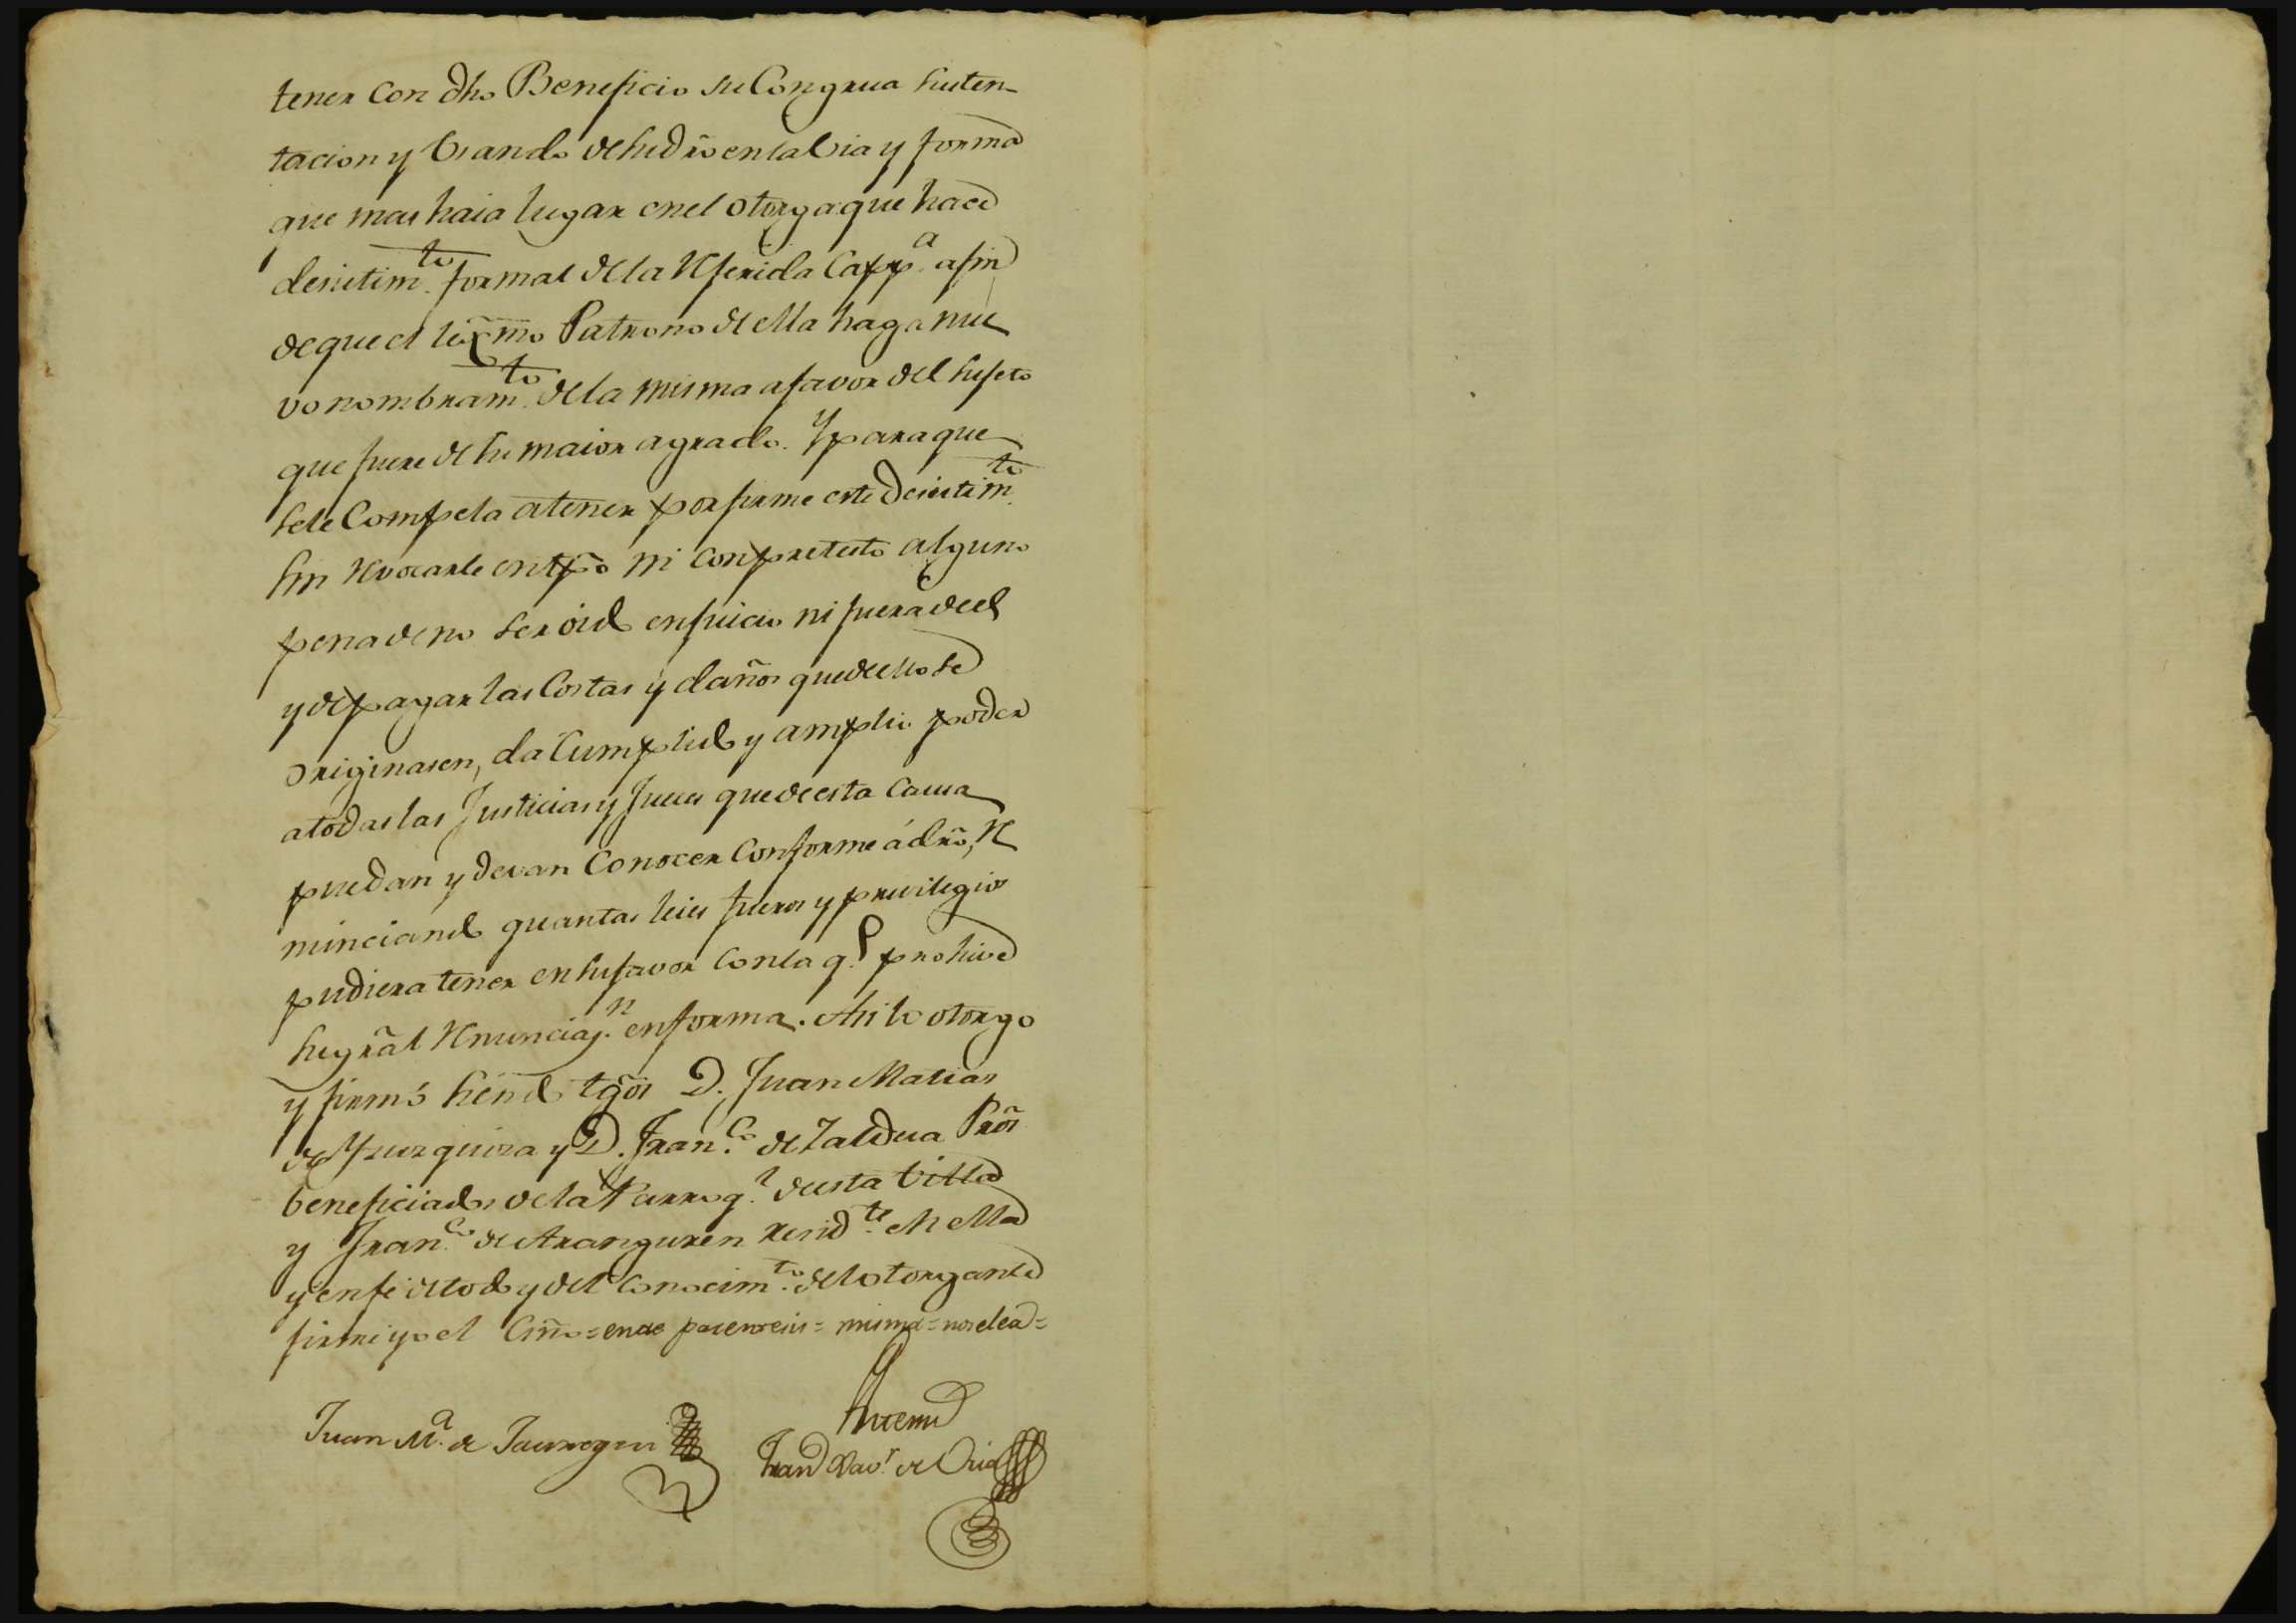 tener con dho Beneficio su Congrua susten-
tacion y Usando de su dr̃o en la Via y forma
que mas haia lugar en el otorga que hace
desistim.to formal de la referida Capp.a a fin
de que el lexmo Patrono de ella haga nue
vo nombram.to de la misma a favor del sujeto
que fuere de su maior agrado. Y para que
se le Compela a tener por firme este desistim.to
sin revocarle en tpõ ni con pretesto alguno
pena de no ser oido en juicio ni fuera de el
y de pagar las Costas y daños que de ello se
originasen, da Cumplido y amplio poder
a todas las Justicias y Jueces que de esta Causa
puedan y devan Conocer Conforme á dr̃o, re
nunciando quantas leies fueros y privilegios
pudiera tener en su favor Con la q.l prohive
su gr̃al renunciaz.n en forma. Asi lo otorgo
y firmó siendo tgõs D. Juan Matias
de Yzurquiza y D. Fran.co de Zaldua Prõs
beneficiados de la Parroq.l de esta Villa
y Fran.co de Aranguren resid.te en ella
y en fe de todo y del Conocim.to del otorgante
firmé yo el Essno = = misma =
Juan M.a de Jauregui
Ante mi
Fran.co Xav.r de